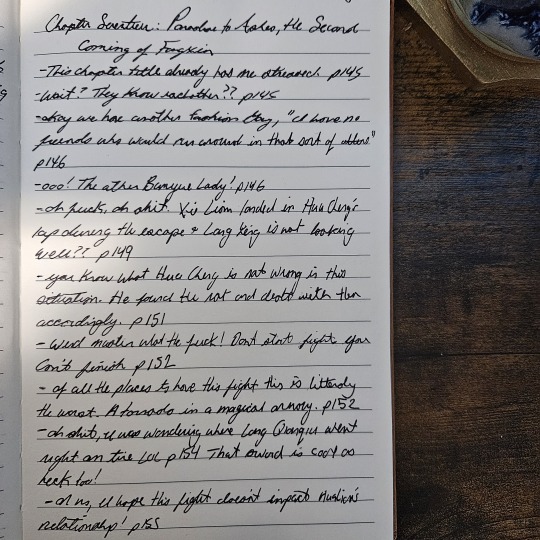 Chapter Seventeen: Paradise to Ashes, the Second
Coming of Fangxin
-This chapter title already has me stressed. p145
-Wait? They know eachother?? p145
-okay we have another fashion Guy, "I have no
friends who would run around in that sort of attire"
p146
-ooo! The other Banyue Lady! p146
-oh fuck, oh shit. Xie Lian landed in Hua Cheng's
lap during the escape & Lang Ying is not looking
well?? p149
-you know what Hua Cheng is not wrong in this
situation. He found the rat and dealt with them
accordingly. p151
-Wind master what the fuck! Dont start fight you
Can't finish p152
- of all the places to have this fight this is litterly
the worst. A tornado in a magical armory. p152
-oh shit, I was wondering where Lang Qianqiu went
right on time LOL p154 That sword is cool as
heck too!
-oh no, I hope this fight doesn't impact Hualian's
relationship! p155